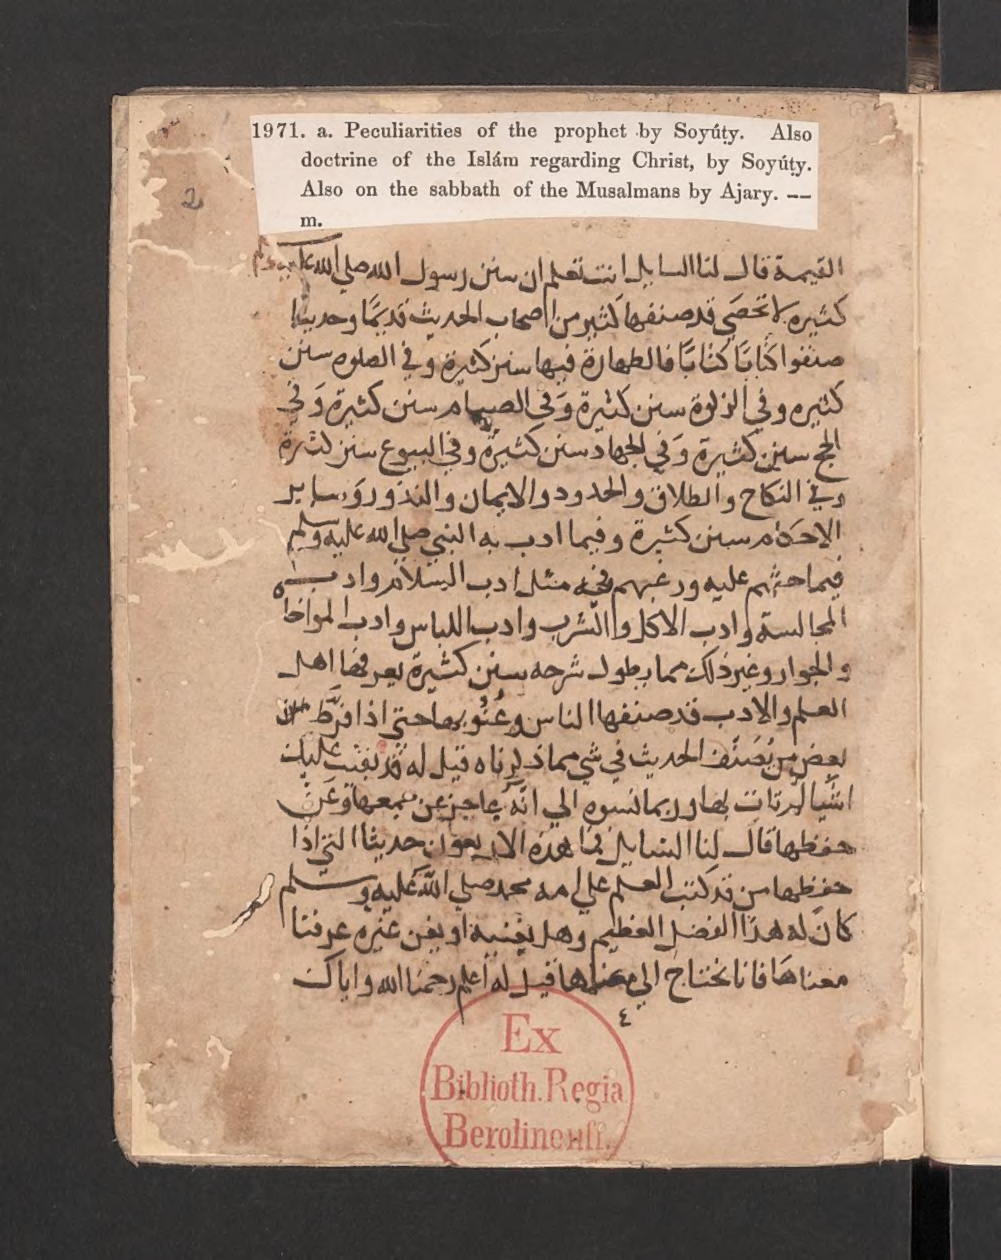 1971. a. Peculiarities of the prophet by Soyúṭy. Also
doctrine of the Islám regarding Christ, by Soyúṭy.
Also on the sabbath of the Musalmans by Ajary. —
m.
2
القيمة قال لنا السايل انت تعلم ان سنن رسول الله صلي الله عليه
كثيره لا تحصَي قد صنفها كثير من اصحاب الحديث قديمًا وحديثا
صنفوا كتابًا كتابًا فالطهارة فيها سنن كثيرة وفي الصلوه سنن
كثيره وفي الزكوة سنن كثيرة وَفي الصيام سنن كثيرة وَفي
الحج سنن كثيرة وَفي الجهاد سنن كثيرة وفي البيوع سنن كثيرة
وفي النكاح والطلاق والحدود والايمان والنذور وَساير
الاحكام سنن كثيرة وفيما ادب به النبي صلي الله عليه وسلم
فيما حثهم عليه ورغبهم فيه مثل ادب السلام وادب
المجالسة وادب الاكل والشرب وادب اللباس وادب المواخاه
والجوار وغير ذلك مما يطول شرحه سنن كثيرة يعرفها اهل
العلم والادب قد صنفها الناس وعُنُوا بها حتي اذا فرَّط
بعض من يُصَنّف الحديث في شي مما ذكرناه قيل له قد بقيت عليك
اشيا لم تات بها وربما نسبوه الي انّه عاجز عن جمعها وَعَن
حفظها قال لنا السايل فما هذه الاربعون حديثا التي اذا
حفظها من قد كتب العلم علي امه محمد صلي الله عليه وسلم
كان له هذا الفضل العظيم وهل يغنيه او بغن غيره عرفنا
معناهَا فانا نحتاج الي معناها قيل له اعلم رحمنا الله واياك
٤
Ex
Biblioth. Regia
Berolinensi.